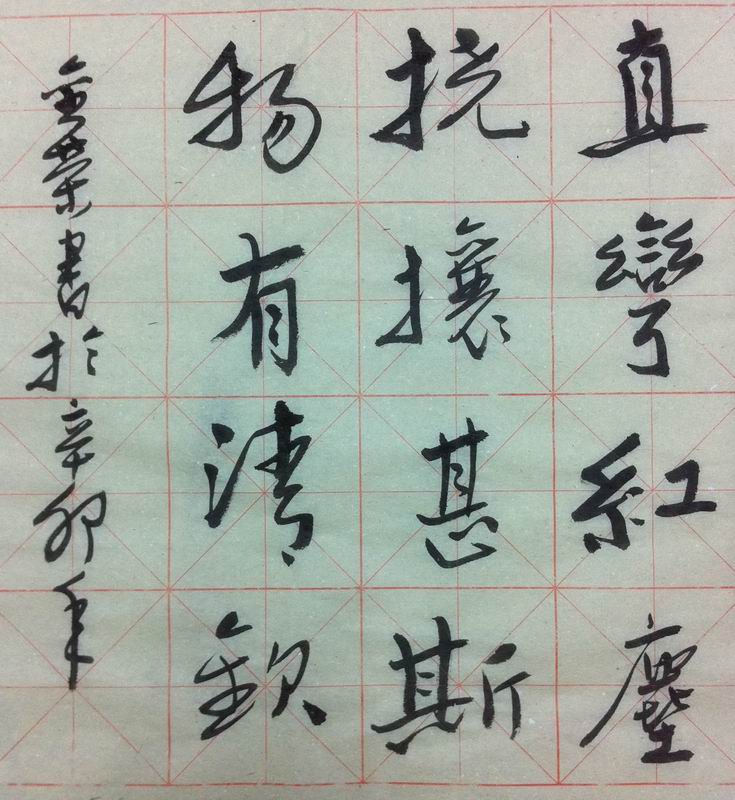 直彎紅塵
挠攘甚斯
物有清欽
金荣書於辛卯年